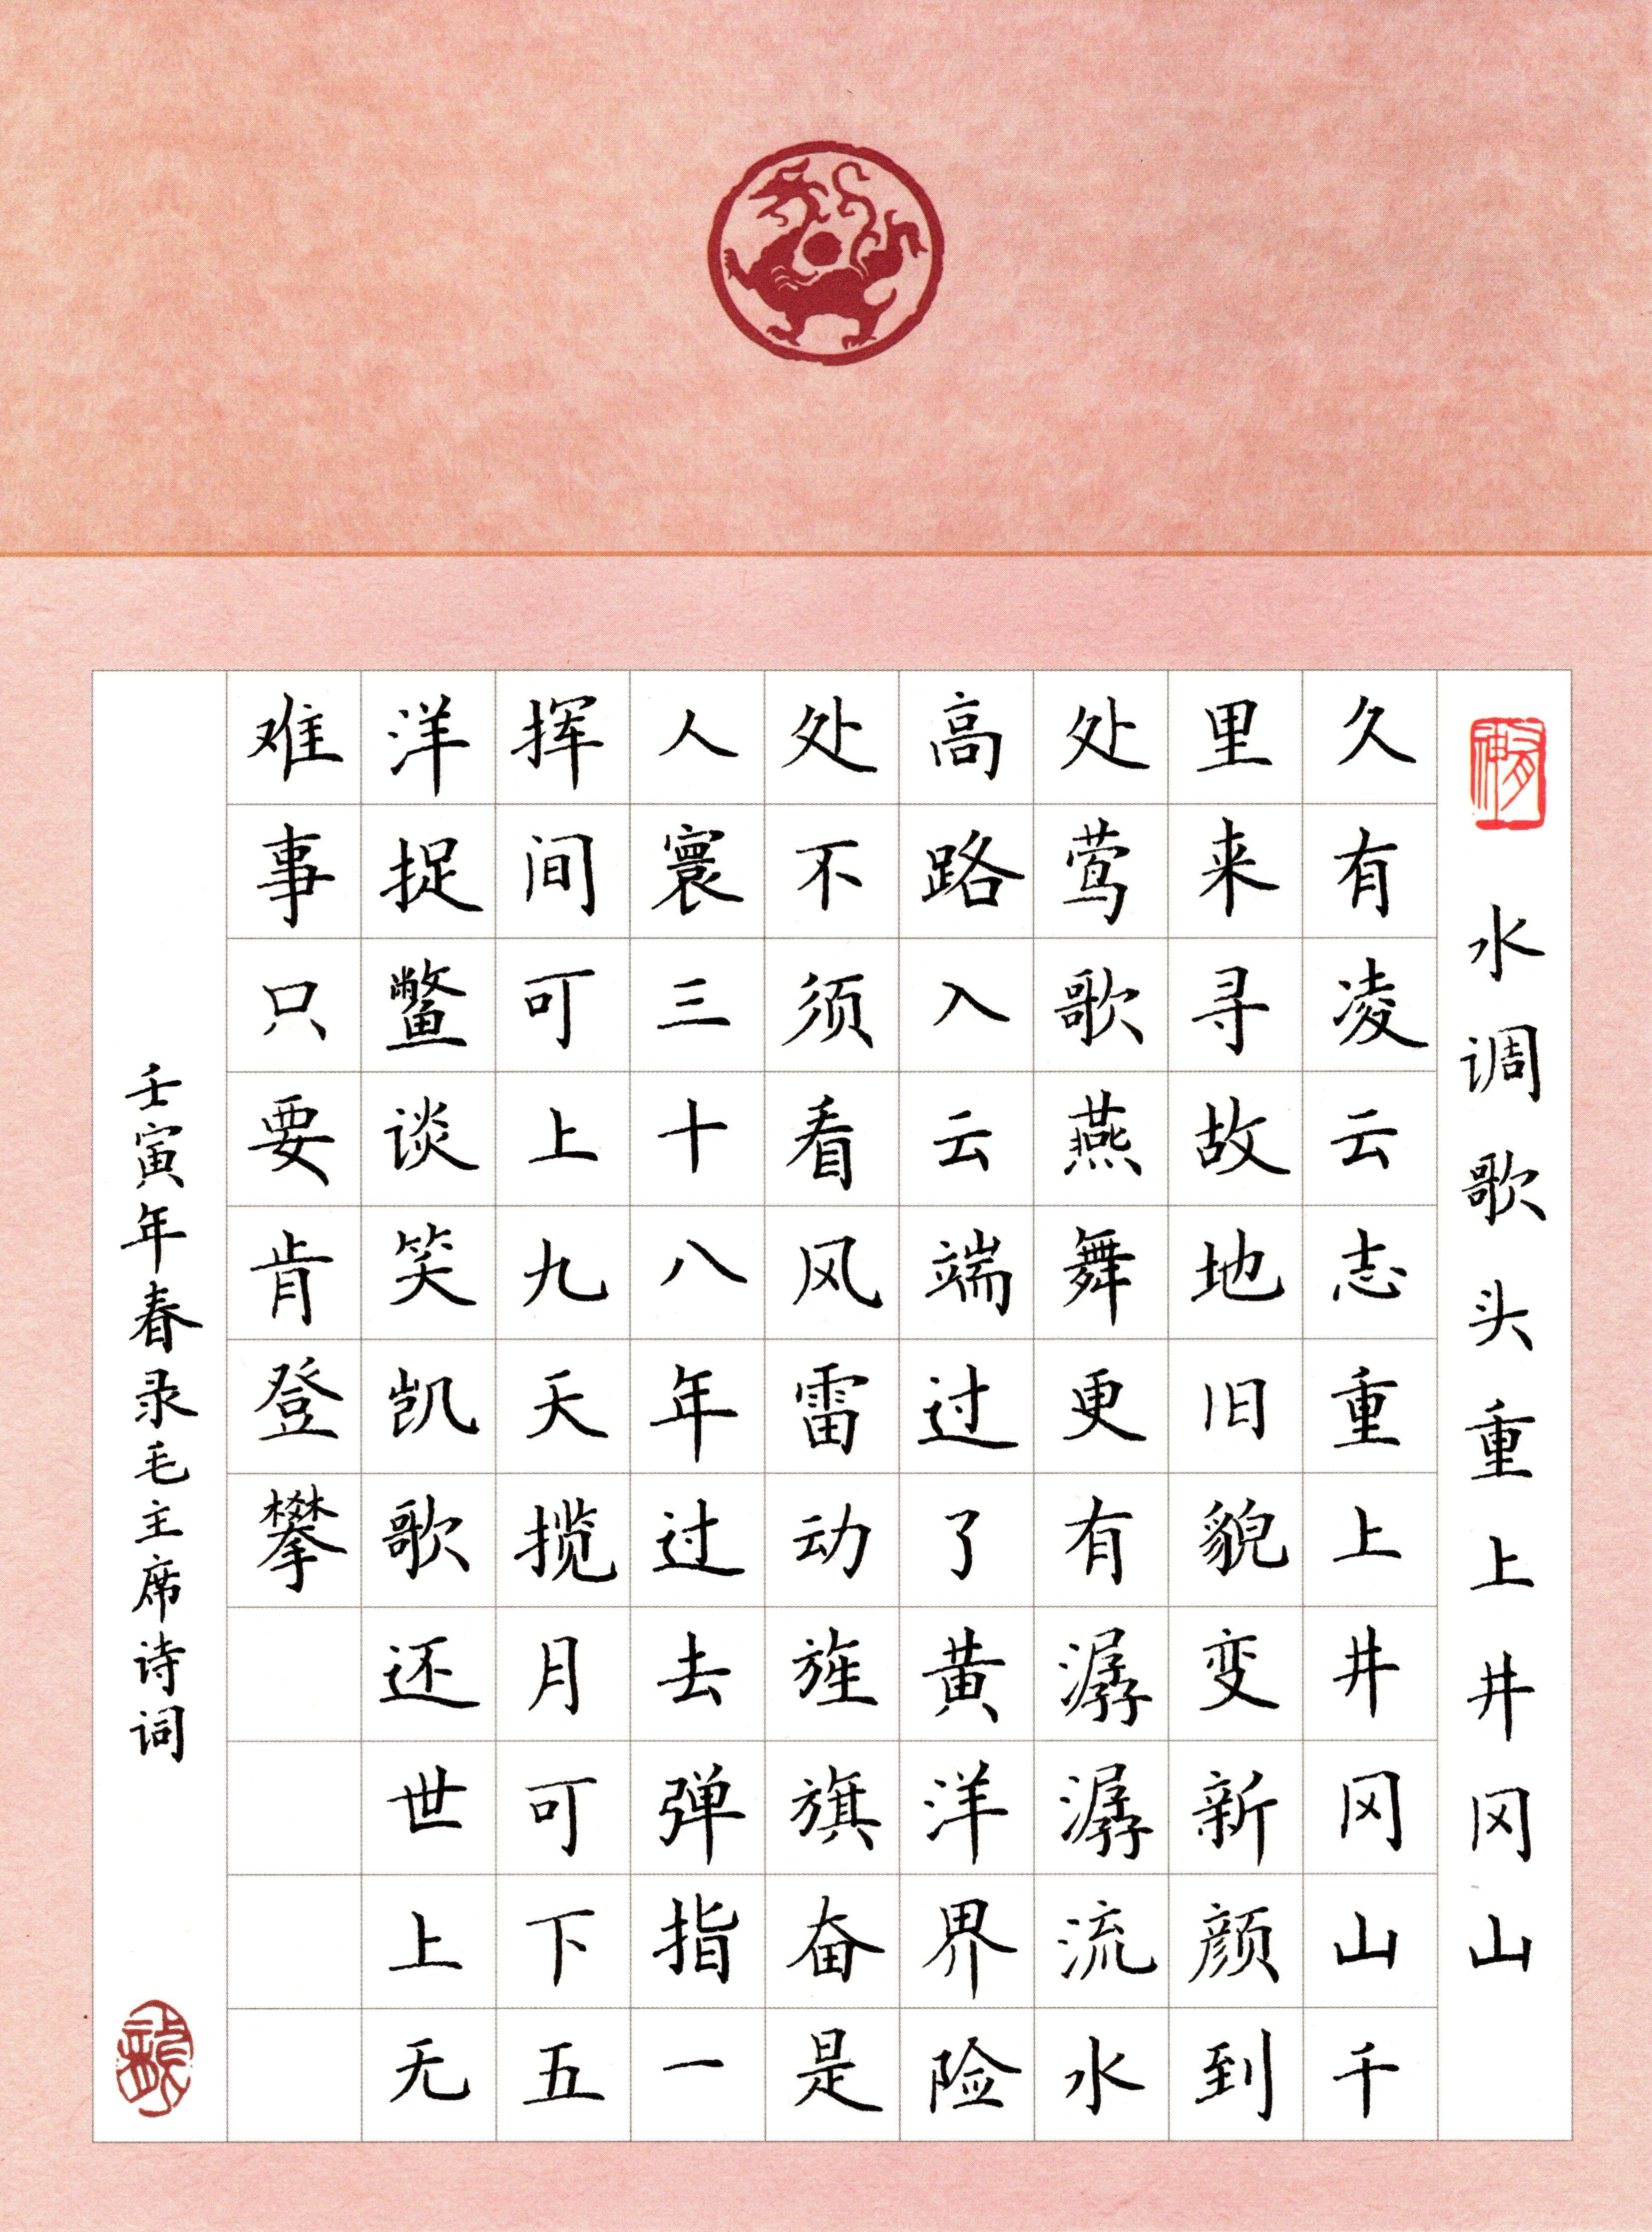 水调歌头重上井冈山
久有凌云志重上井冈山千
里来寻故地旧貌变新颜到
处莺歌燕舞更有潺潺流水
高路入云端过了黄洋界险
处不须看风雷动旌旗奋是
人寰三十八年过去弹指一
挥间可上九天揽月可下五
洋捉鳖谈笑凯歌还世上无
难事只要肯登攀
壬寅年春录毛主席诗词